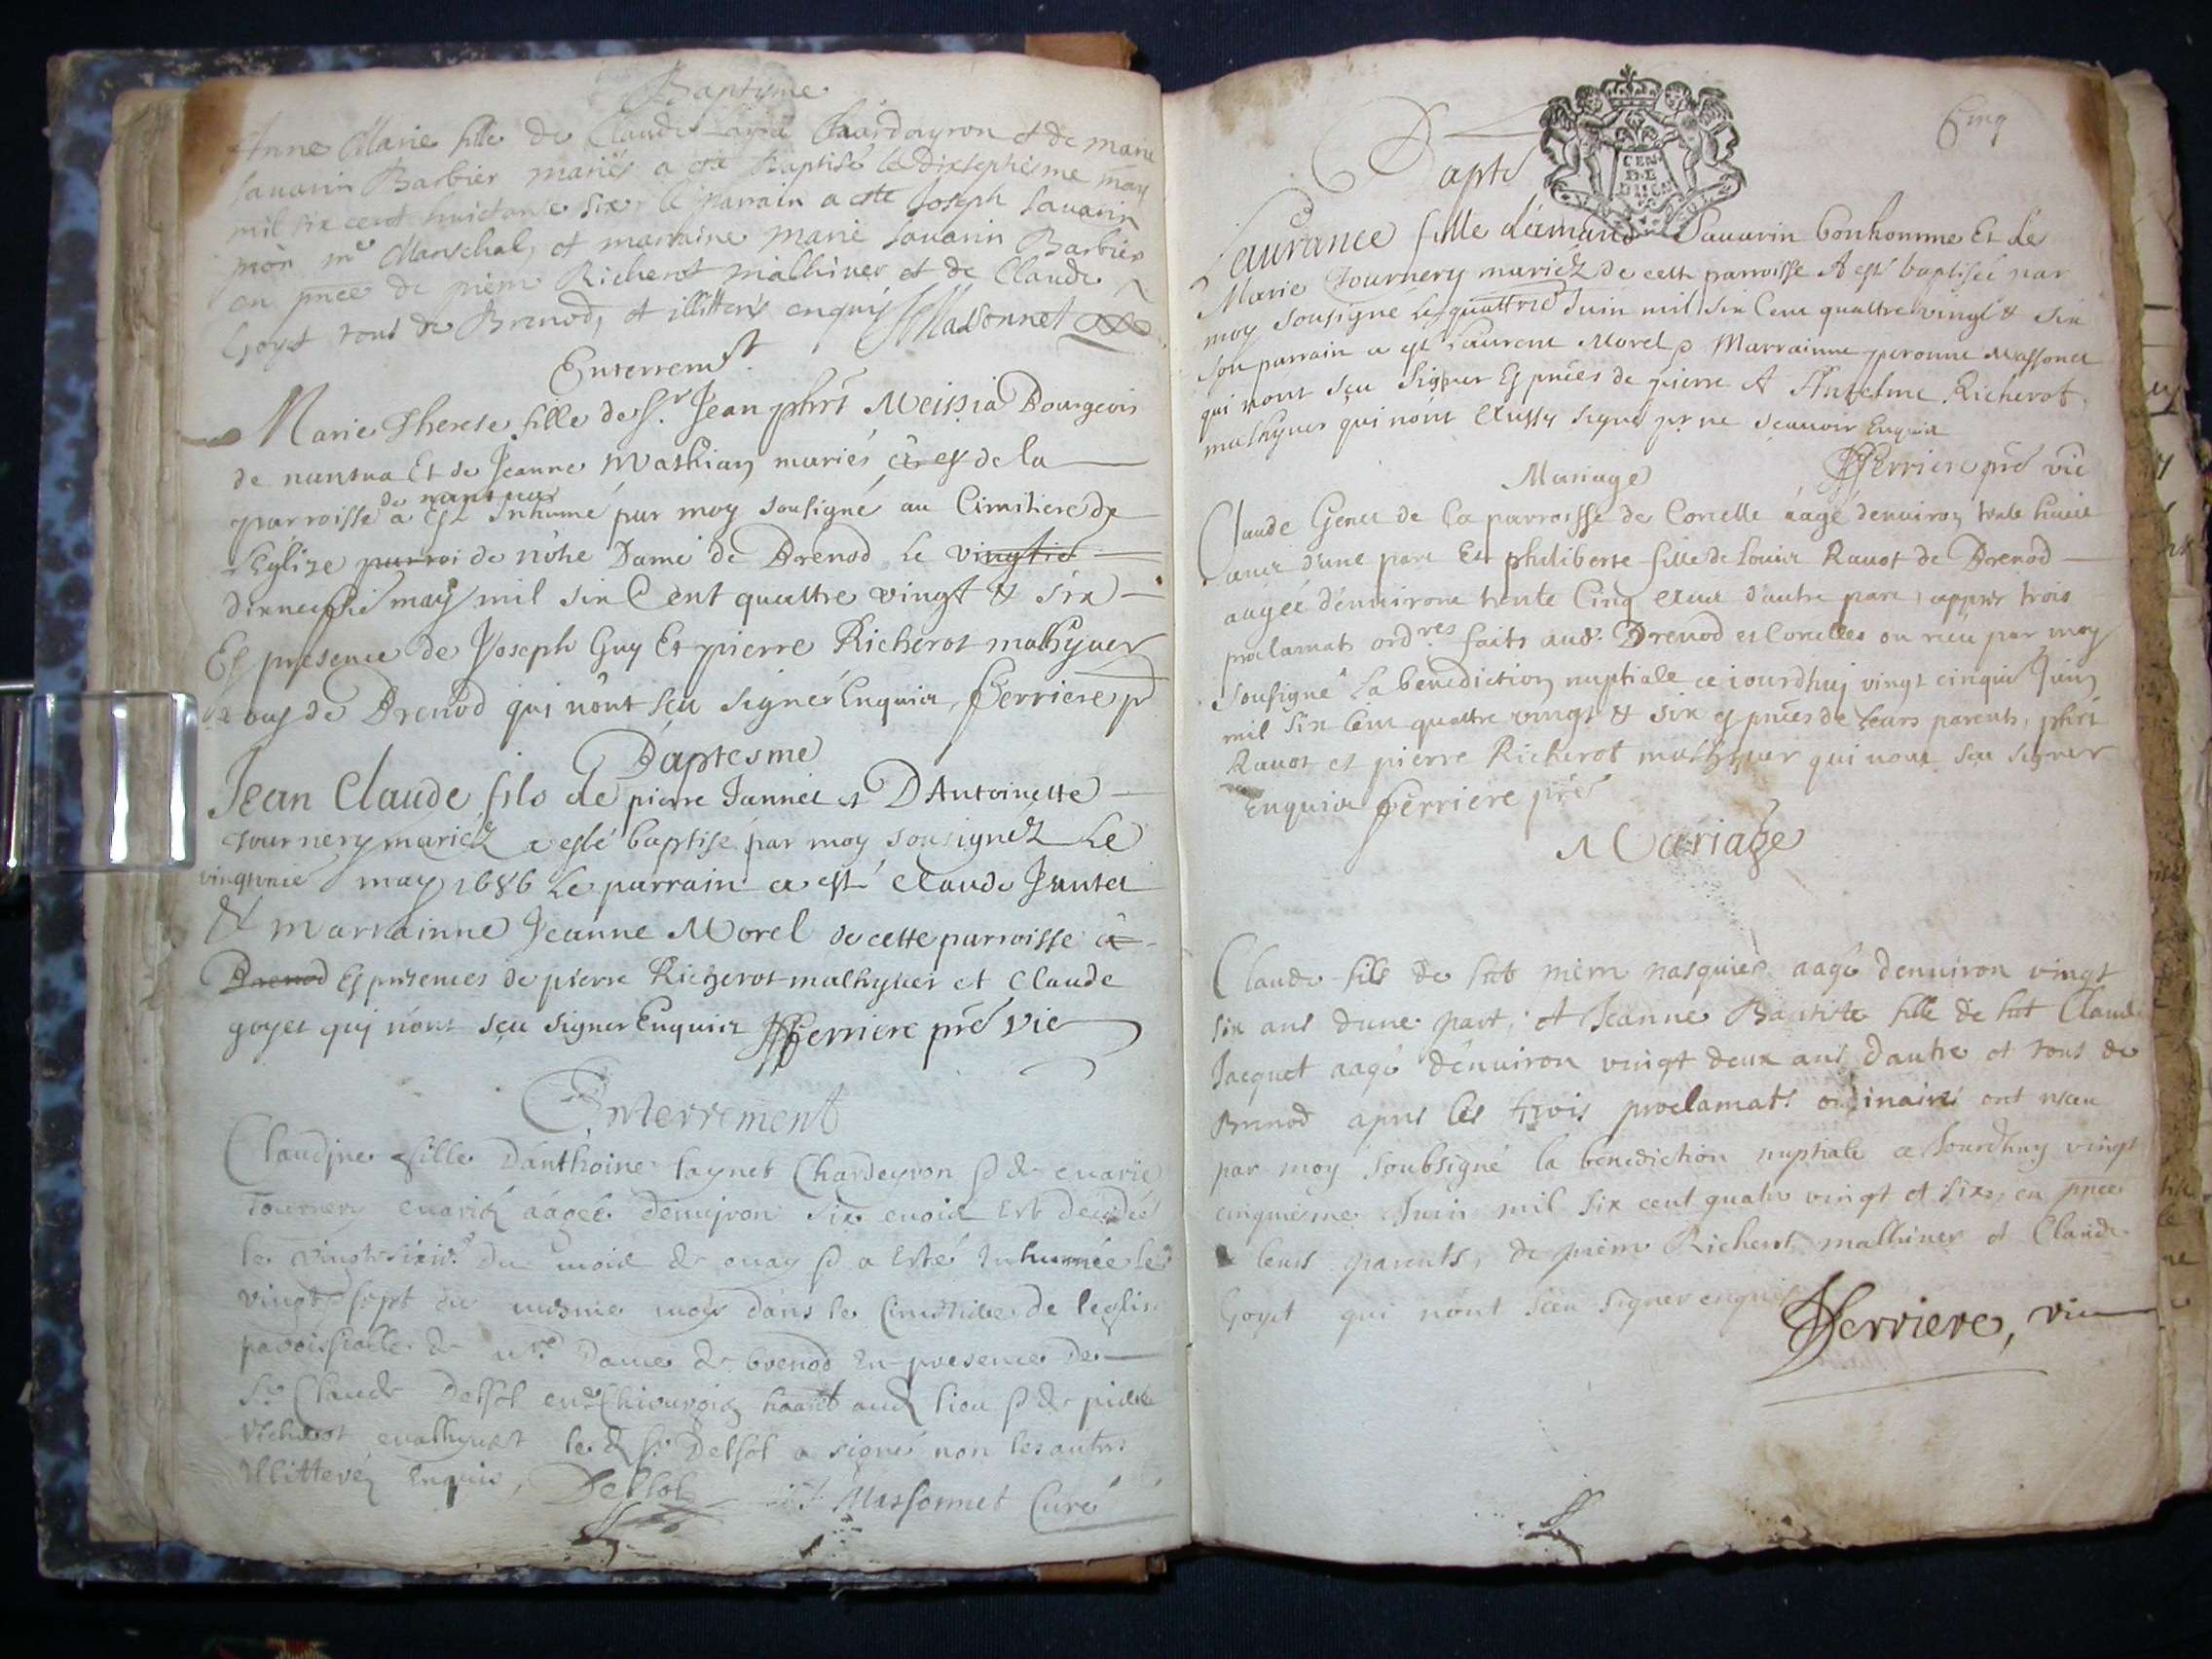 Baptisme
Anne Marie fille de Claude Chardayron et de marie
Sauarin Barbier mariés a esté baptisé le dixseptiesme may
mil six cent huictante six, le parrain a esté Joseph Sauarin
mon me Mareschal, et marraine marie Sauarin Barbier
en pnce de pierre Richerot malhiuer et de Claude
Goyet tous de Brenod, et illitterés enquis Massonnet
Enterremt
Marie Therese fille de Sr. Jean phirt Meissia Bourgeois
de nantua Et de Jeanne Mathian mariés de la
de nantua
parroisse a Est Inhumé par moy sousigné au Cimitiere de
l'Eglize parroi de nôtre Dame de Brenod le vingtie
dixneufie may mil six Cent quattre vingt & six
Ez presence de Joseph Guy Et pierre Richerot malhyuer
tous de Brenod qui nônt sçu signer Enquis, fferriere p
Baptesme
Jean Claude fils de pierre Jannet et D'Antoinette
Tournery mariéz a esté baptisé par moy sousignéz Le
may 1686 Le parrain a esté Claude Jantet
& marrainne Jeanne Morel de cette parroisse
Brenod Ez presences de pierre Richerot malhyuer et Claude
goyet qui nônt sçu signer Enquis fferriere pre vic
Enterrement
Claudine fille D'anthoine Chardeyron & de marie
Tournery mariéz aágeé denuiron six mois Est decedeé
le vingtsixie. du mois de may & a Esté Inhumée le
vingt sept du mesme mois dans le Cimitiere de leglise
paroissialle de nre. Dame de brenod En presence de
Sr. Claude Delsol Chirurgien lieu & de pierre
richerot malhyuert le d sr. Delsol a signé non les autres
Illitteréz Enquis, Delsol Massonnet Curé
Cinq
Bapte
CEN.
DE
Laurance fille déimund Sauarin bonhomme Et de
Marie Tournery mariéz de cette parroisse A esté baptiseé par
moy sousigné le quattrie Juin mil six Cent quattre vingt & six
son parrain a est Laurent Morel & Marrainne peronne Massonet
qui nont sçu signer Ez pnces de pierre & Anthelme Richerot
malhyuer qui nont Aussy signé pr ne sçauoir Enquis
fferriere pre vic
Mariage
Claude Genet de la parroisse de Corcelle áagé denuiron trente huict
ans d'une part Et philiberte fille de Louis Rauot de Brenod
aageé d'enuirons trente Cinq ans d'autre part, appres trois
proclamats ordres. faits aud. Brenod et Corcelles on reçu par moy
sousigné la benediction nuptiale ce iourdhuj vingt cinquie Juin
mil six Cent quattre vingt & six ez pnces de leurs parents, phirt
Rauot et pierre Richerot malhyuer qui nont sçu signer
Enquis fferriere pre
Mariage
Claude fils de fut pierre pasquier aagé denuiron vingt
six ans dune part, et Jeanne Baptiste fille de fut Claude
Jacquet aagé d'enuiron vingt deux ans d'autre et tous de
Brenod apres les trois proclamats ordinaires ont receu
par moy soubsigné la benediction nuptiale ce Jourdhuy vingt
cinquiesme Juin mil six cent quatre vingt et six, en pnce
leurs parents, de pierre Richerot malhiuer et Claude
Goyet qui nônt sceu signer enquis
fferriere, vic